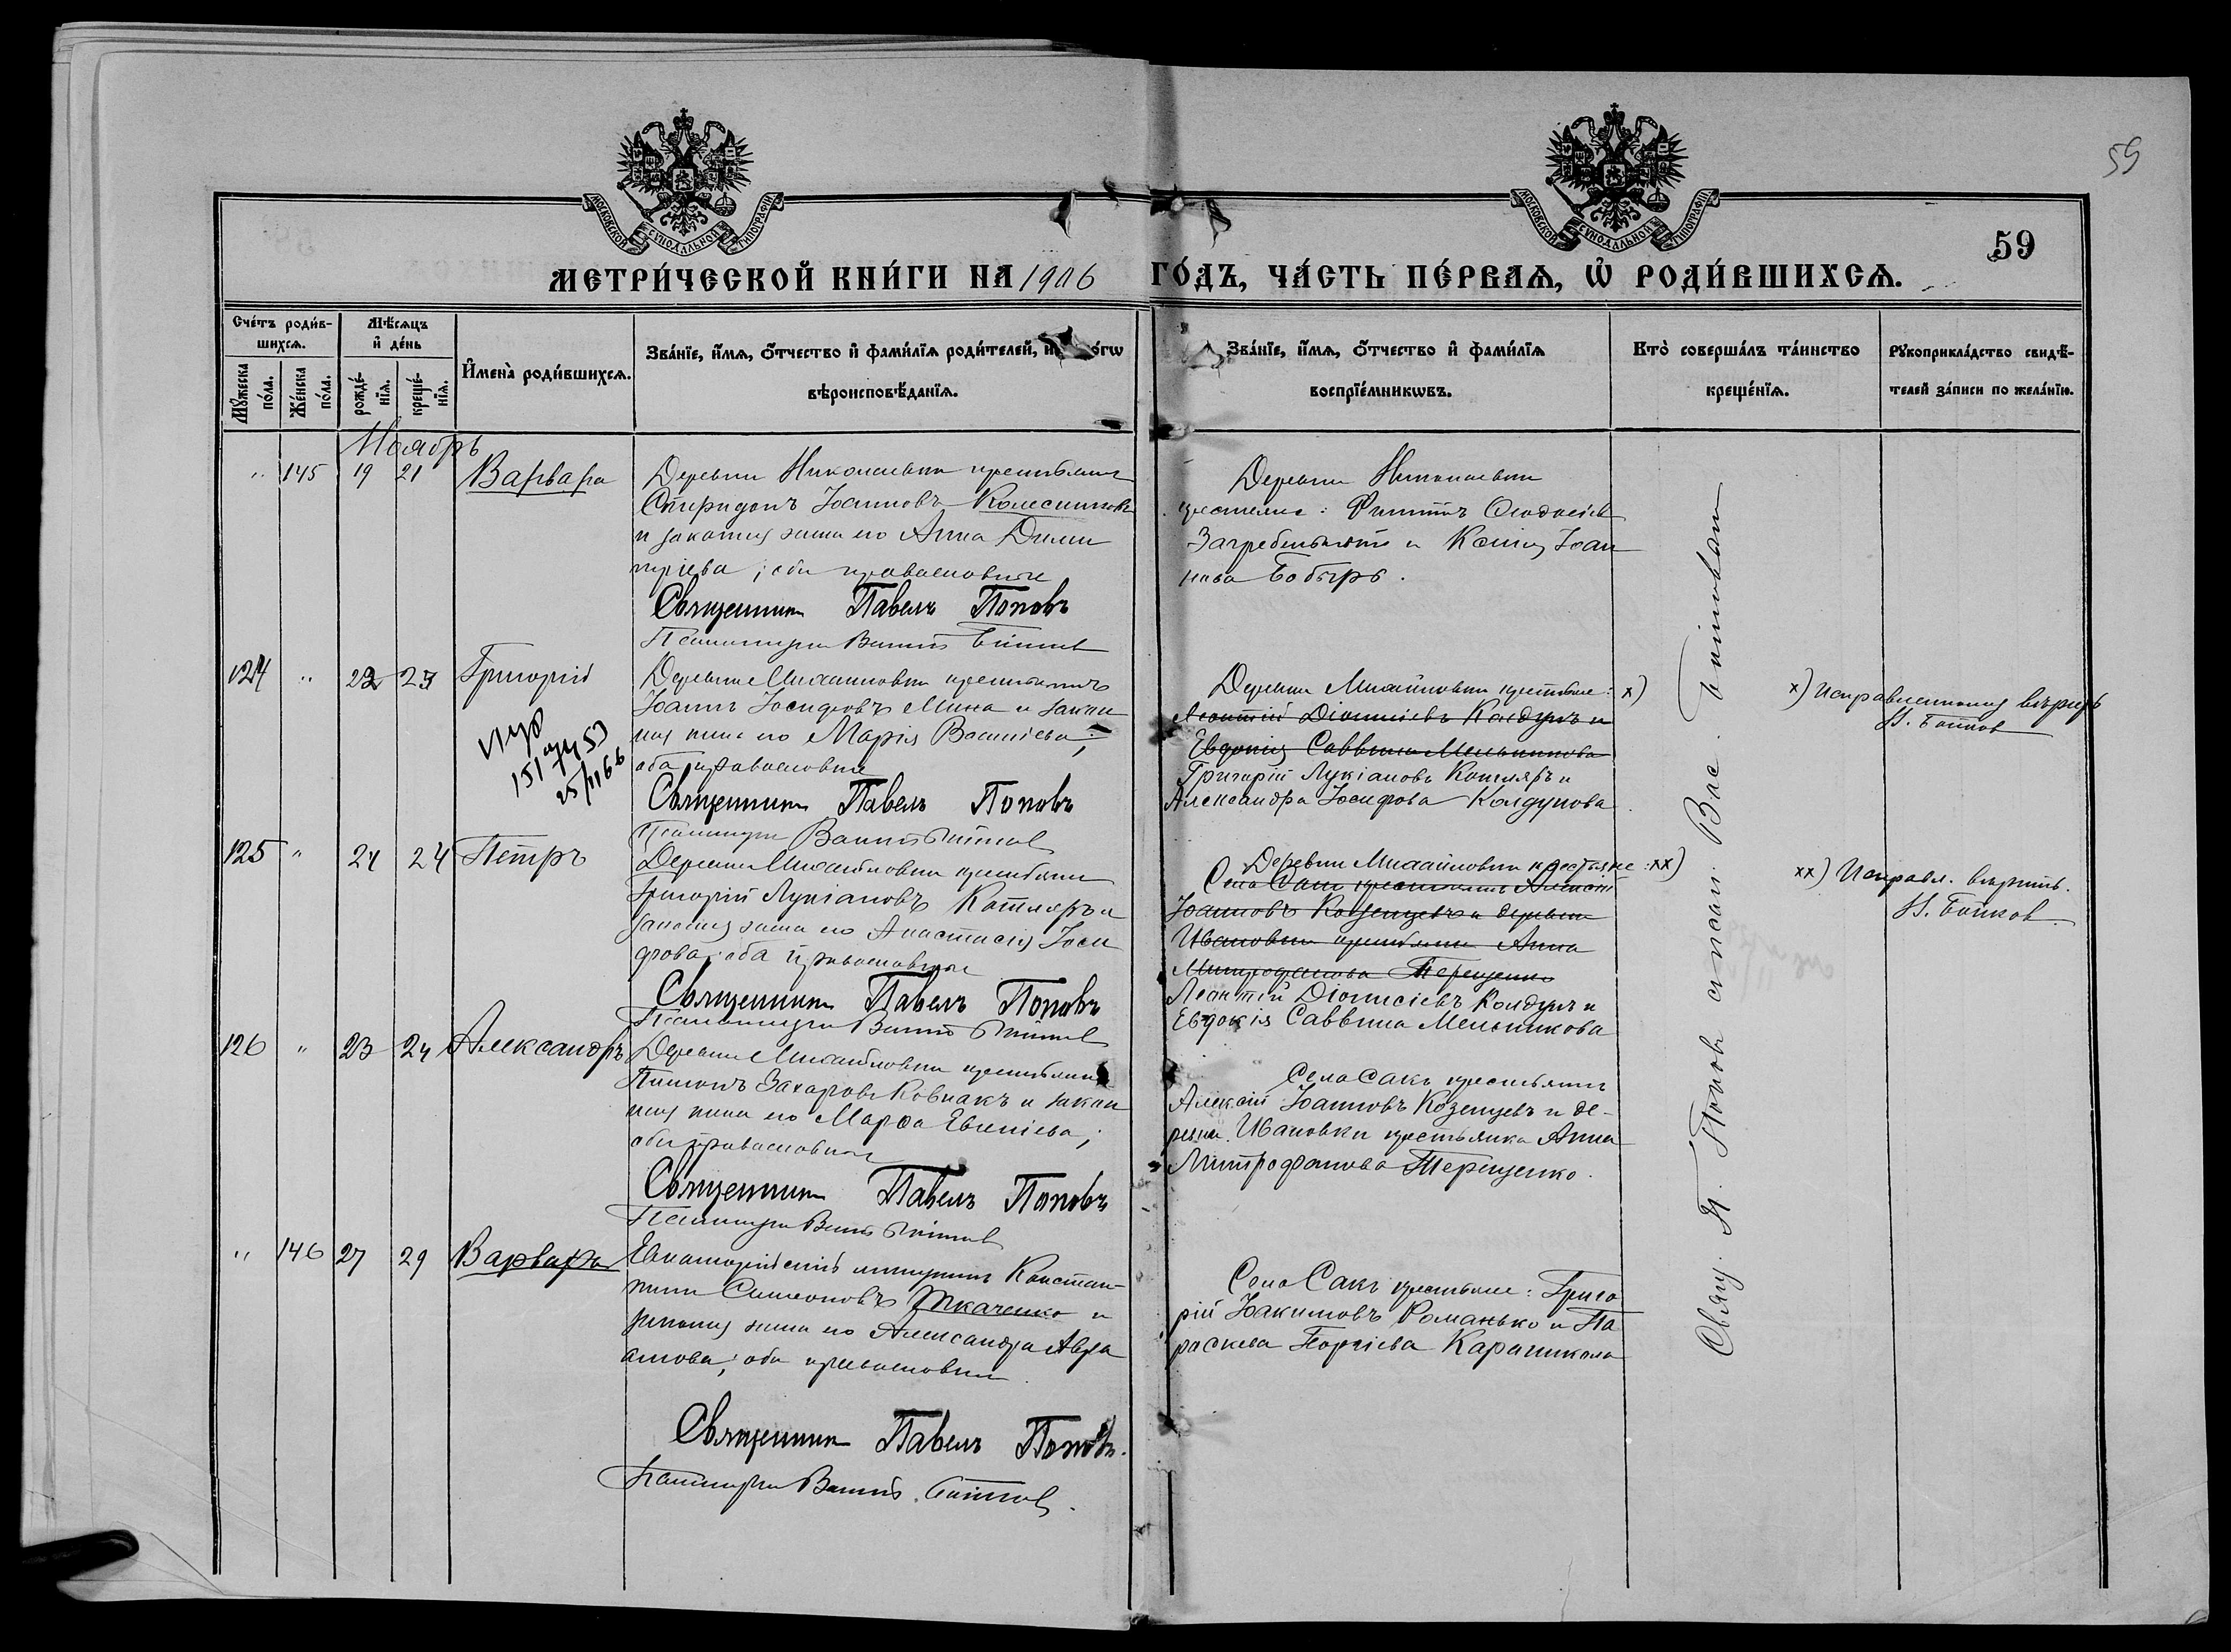 59
МОСКОВСКОЙ СѴНОДАЛЬНОЙ ТИПОГРАФІИ
МОСКОВСКОЙ СѴНОДАЛЬНОЙ ТИПОГРАФІИ
59
МЕТРИ́ЧЕСКОЙ КНИ́ГИ НА 1906 ГО́ДЪ, ЧА́СТЬ ПЕ́РВАѦ, Ѡ҆ РОДИ́ВШИХСѦ.
Сче́тъ роди́в-
шихсѧ.
Мꙋ́жеска по́ла.
Же́нска по́ла.
Мѣ́сѧцъ
и҆ де́нь
рожде́-
нїѧ.
креще́-
нїѧ.
И҆мена̀ роди́вшихсѧ.
Зва́нїе, и҆́мѧ, ѻ҆́тчество и҆ фами́лїѧ роди́телей,
вѣроисповѣ́данїѧ.
Зва́нїе, и҆́мѧ, ѻ҆́тчество и҆ фами́лїѧ
воспрїе́мникωвъ.
Кто̀ соверша́лъ та́инство
креще́нїѧ.
Рꙋкоприкла́дство свидѣ́-
телей за́писи по жела́нїю.
Ноябрь
" 145 19 21 Варвара
Деревни Николаевки крестьянинъ
Спиридонъ Іоанновъ Колесниковъ
и законная жена его Анна Дими
тріева; оба православные
Священникъ Павелъ Поповъ
Деревни Николаевки
крестьяне: Филиппъ Ѳеодосіевъ
и Іоан
нова Бобырь.
124 " 22 23 Григорій
Деревни Михайловки крестьянинъ
Іоаннъ Іосифовъ Мина и закон
ная жена его Марія Василіева;
оба православные
Священникъ Павелъ Поповъ
151
25/II 66
Деревни Михайловки крестьяне: х)
Леонтій Діонисіевъ Колдунъ и
Евдокія Саввина Мельникова
Григорій Лукіановъ Котляръ и
Александра Іосифова Колдунова
х) Исправленному вѣрить
125 " 24 24 Петръ
Деревни Михайловки крестьянинъ
Григорій Лукіановъ Котляръ и
законная жена его Анастасія Іоси
фова; оба православные
Священникъ Павелъ Поповъ
Деревни Михайловки крестьяне: хх)
Села Саки крестьянинъ Алексій
Іоанновъ Козенцевъ и деревни
Ивановки крестьянка Анна
Митрофанова Терещенко
Леонтій Діонисіевъ Колдунъ и
Евдокія Саввина Мельникова
хх) Исправл. вѣрить.
126 " 23 24 Александръ
Деревни Михайловки крестьянинъ
Захаровъ Ковпакъ и закон
ная жена его Марѳа Евгеніева;
оба православные
Священникъ Павелъ Поповъ
Села Саки крестьянинъ
Алексій Іоанновъ Козенцевъ и де-
ревни Ивановки крестьянка Анна
Митрофанова Терещенко.
" 146 27 29 Варвара
Евпаторійскій мѣщанинъ Констан-
тинъ Симеоновъ Ткаченко и
законная жена его Александра Авра
амова; оба православные
Священникъ Павелъ Поповъ.
Села Саки крестьяне: Григо
рій Іакимовъ Романько и Па
раскева
Свящ. П. Поповъ съ псал. Вас.